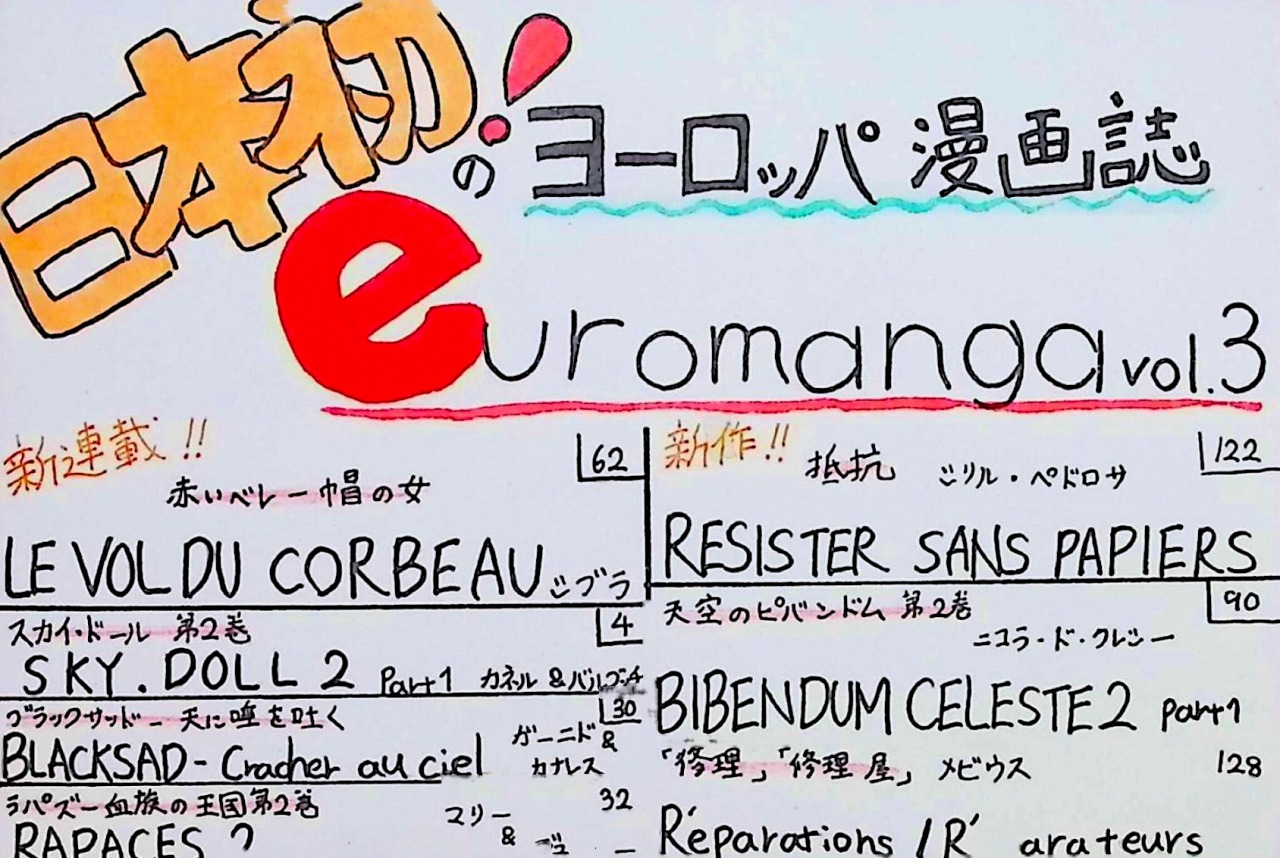 日本初!
のヨーロッパ漫画誌
euromanga vol.3
新連載!!
62
赤いベレー帽の女
LE VOL DU CORBEAU
ジブラ
スカイ・ドール 第2巻
4
SKY.DOLL 2 Part1 カネル&バルブッチ
ブラックサッド- 天に唾を吐く
30
BLACKSAD- Cracher au ciel
ガーニド&
カナレス
ラパズー血族の王国第2巻
32
マリー
&
RAPACES 2
新作!!
122
抵抗 シリル・ペドロサ
RESISTER SANS PAPIERS
天空のビバンドム 第2巻
90
ニコラ・ド・クレシー
BIBENDUM CELESTE 2 part1
「修理」「修理屋」 メビウス
128
Réparations /